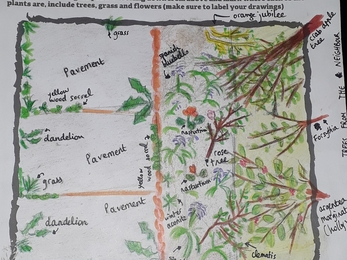 plants are, include trees, grass and flowers (make sure to label your drawings)
orange jubilee
grass
crab apple
tree
spanish
bluebells
Pavement
yellow
wood sorrel
TREES FROM THE
NEIGHBOUR
dandelion
nasturtium
forsythia
Pavement
rose
tree
yellow
wood sorrel
grass
nasturtium
Pavement
winter
aconite
dandelion
clematis